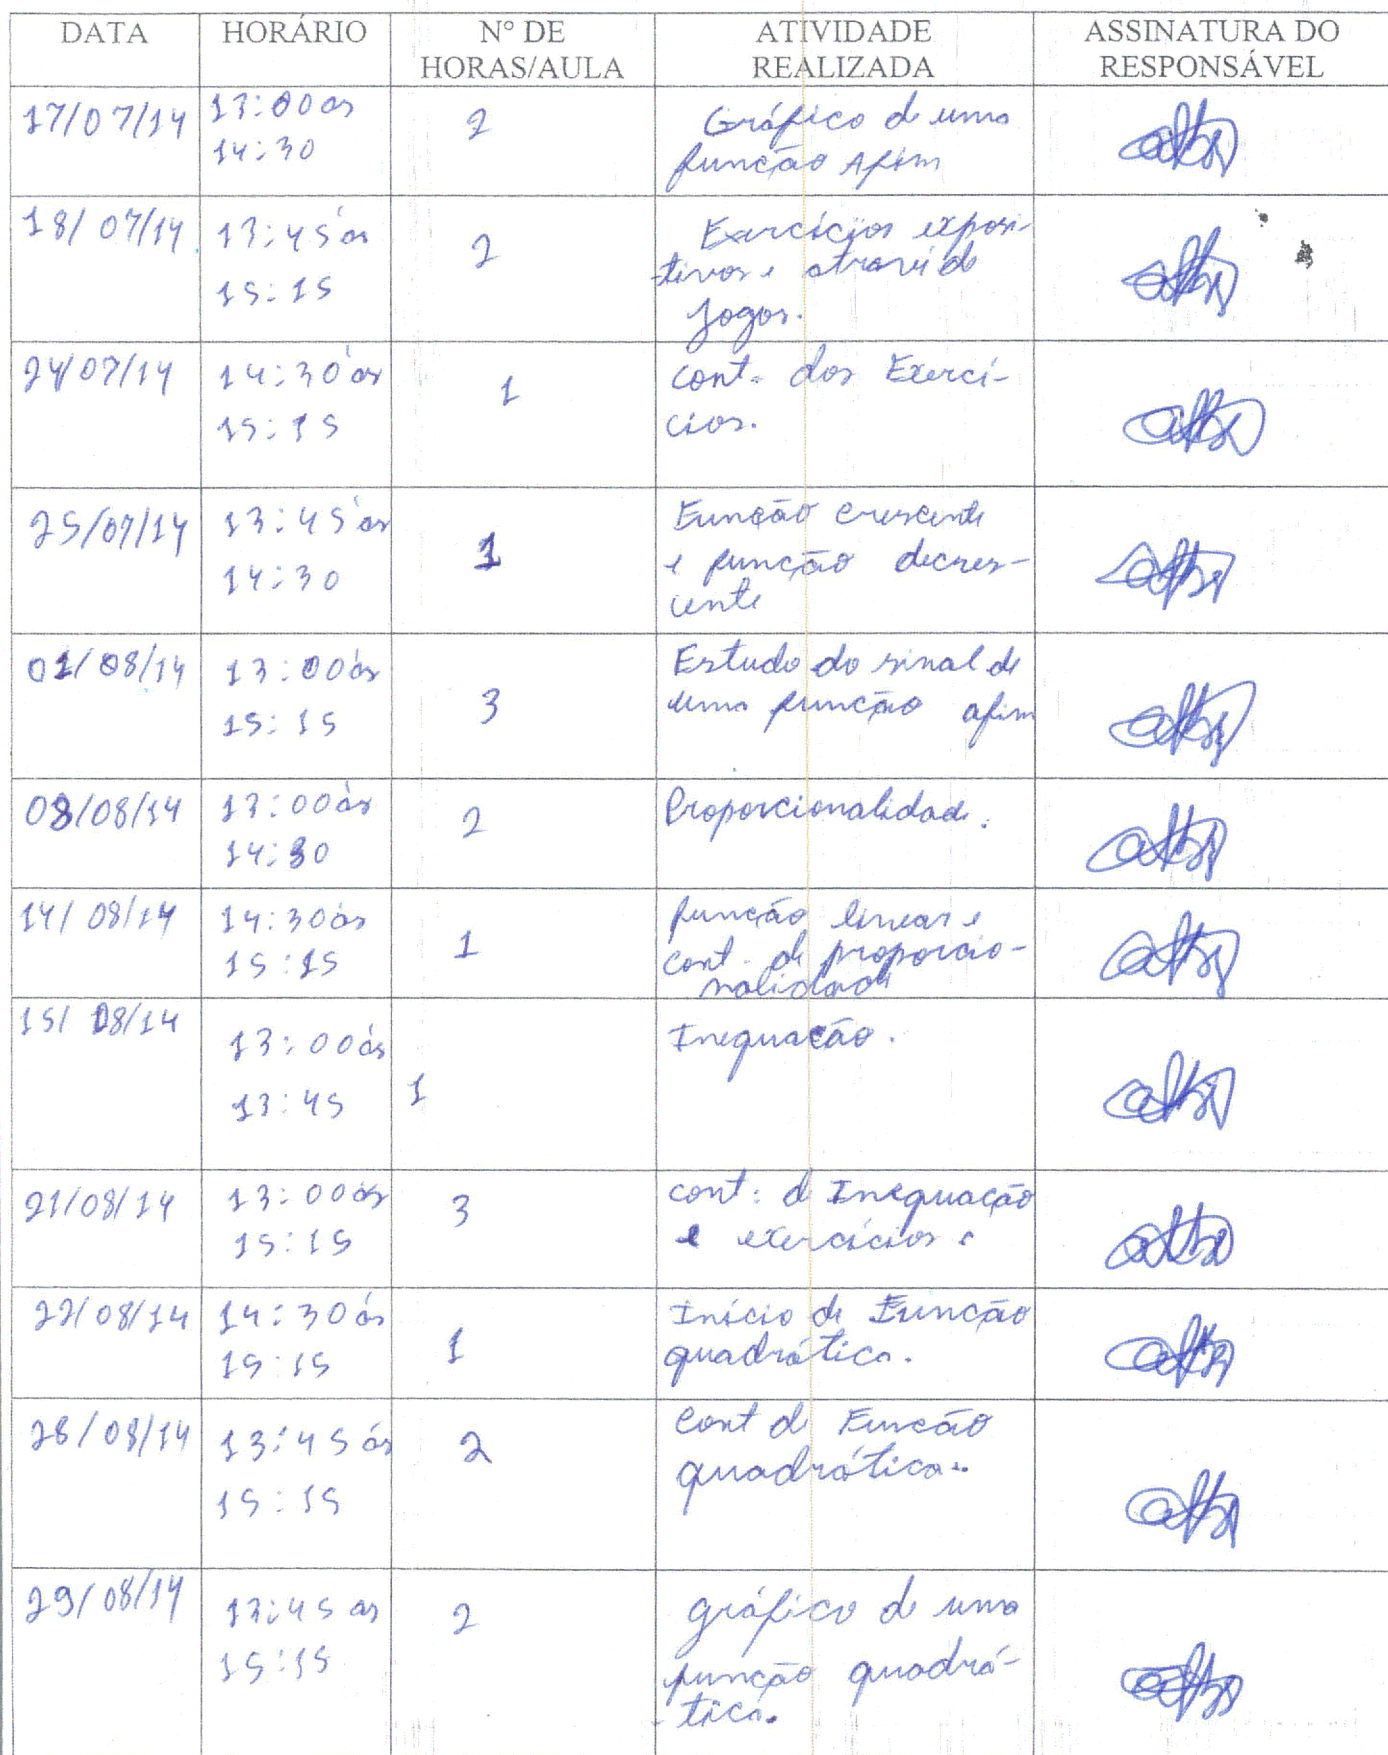 DATA HORÁRIO Nº DE HORAS/AULA ATIVIDADE REALIZADA ASSINATURA DO RESPONSÁVEL
17/07/14 13:00 as 2 Gráfico de uma
14:30 função Afim
18/07/14 13:45 às 2 Exercícios exposi-
15:15 tivos e através de
jogos.
24/07/14 14:30 às 1 cont. dos Exercí-
15:15 cios.
25/07/14 13:45 às 1 Função crescente
14:30 e função decres-
cente
01/08/14 13:00 às 3 Estudo do sinal de
15:15 uma função afim
08/08/14 13:00 às 2 Proporcionalidade.
14:30
14/08/14 14:30 às 1 função linear e
15:15 cont. de proporcio-
nalidade
15/08/14 13:00 às 1 Inequação.
13:45
21/08/14 13:00 às 3 cont. de Inequação
15:15 e exercícios.
22/08/14 14:30 às 1 Início de Função
15:15 quadrática.
28/08/14 13:45 às 2 Cont de Função
15:15 quadrática.
29/08/14 13:45 as 2 gráfico de uma
15:15 função quadrá-
tica.